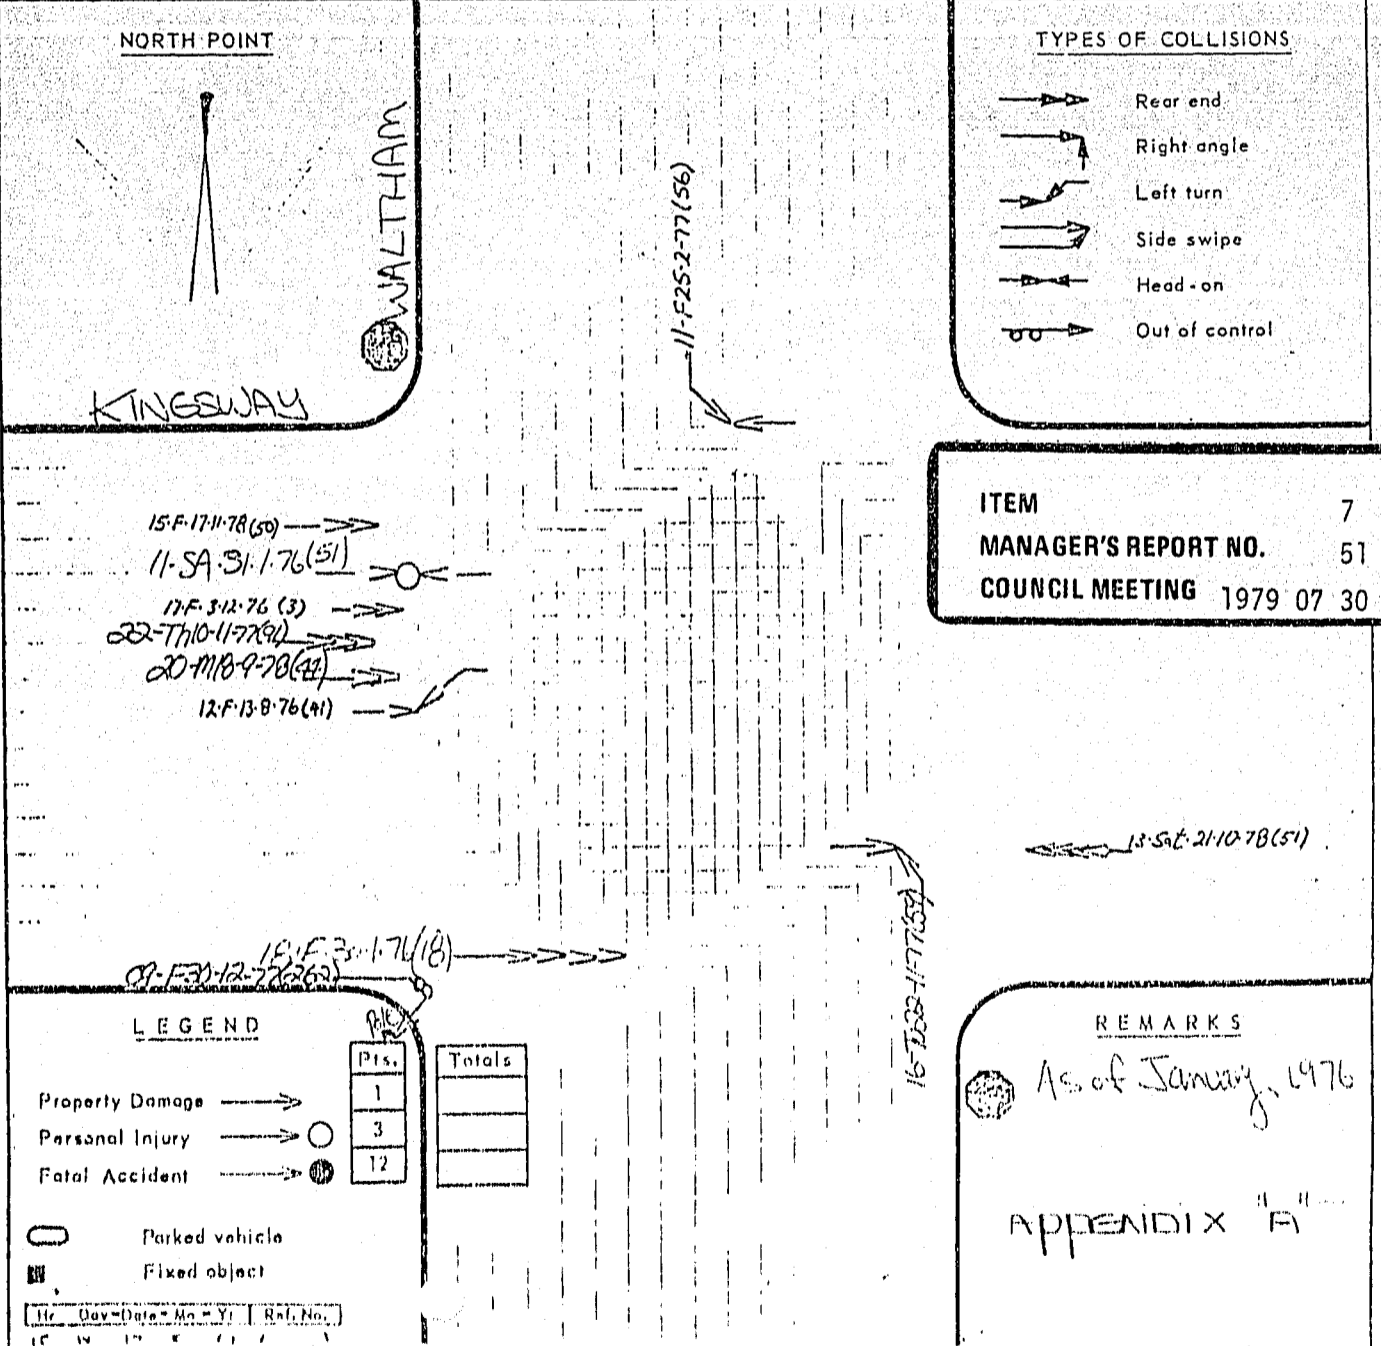 NORTH POINT
WALTHAM
KINGSWAY
TYPES OF COLLISIONS
Rear end
Right angle
Left turn
Side swipe
Head-on
Out of control
11-F25-2-77(56)
ITEM 7
MANAGER'S REPORT NO. 51
COUNCIL MEETING 1979 07 30
15·F·17·11·78(50)
11·SA·31·1·76(51)
17·F·3·12·76 (3)
22-Th10-11-77(91)
20-M18-9-78(44)
12·F·13·8·76(41)
13·Sat·21·10·78(51)
18·F·30·1·76(18)
09-F30-12-77(262)
LEGEND
Pts. Totals
Property Damage 1
Personal Injury 3
Fatal Accident 12
Parked vehicle
Fixed object
Hr Day-Date-Mo-Yr Ref. No.
REMARKS
As of January, 1976
APPENDIX "A"